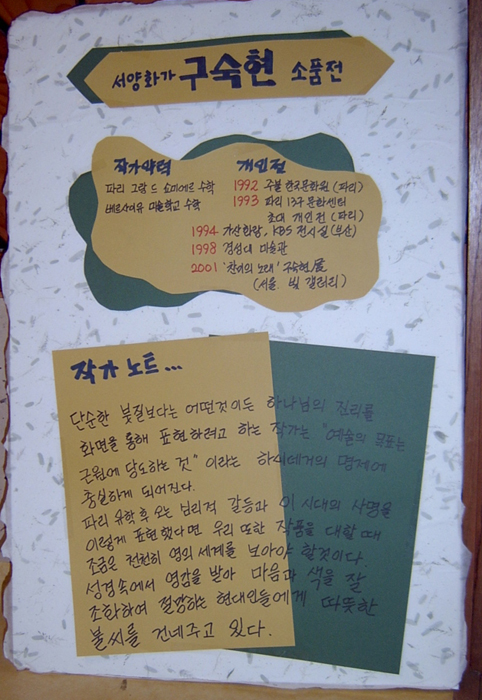 서양화가 구숙현 소품전
작가약력
파리 그랑 드 쇼미에르 수학
베르사이유 미술학교 수학
개인전
1992 주불 한국문화원 (파리)
1993 파리 13구 문화센터
초대 개인전 (파리)
1994 가산화랑, KBS 전시실(부산)
1998 경성대 미술관
2001 '찬미의 노래' 구숙현展
(서울 빛 갤러리)
작가 노트...
단순한 붓질보다는 어떤것이든 하나님의 진리를
화면을 통해 표현하려고 하는 작가는 "예술의 목표는
근원에 당도하는 것" 이라는 하이데거의 명제에
충실하게 되어진다.
파리 유학 후 오는 심리적 갈등과 이 시대의 사명을
이렇게 표현했다면 우리 또한 작품을 대할 때
조금은 천천히 영의 세계를 보아야 할것이다.
성경속에서 영감을 받아 마음과 색을 잘
조화하여 절망하는 현대인들에게 따뜻한
불씨를 건네주고 있다.